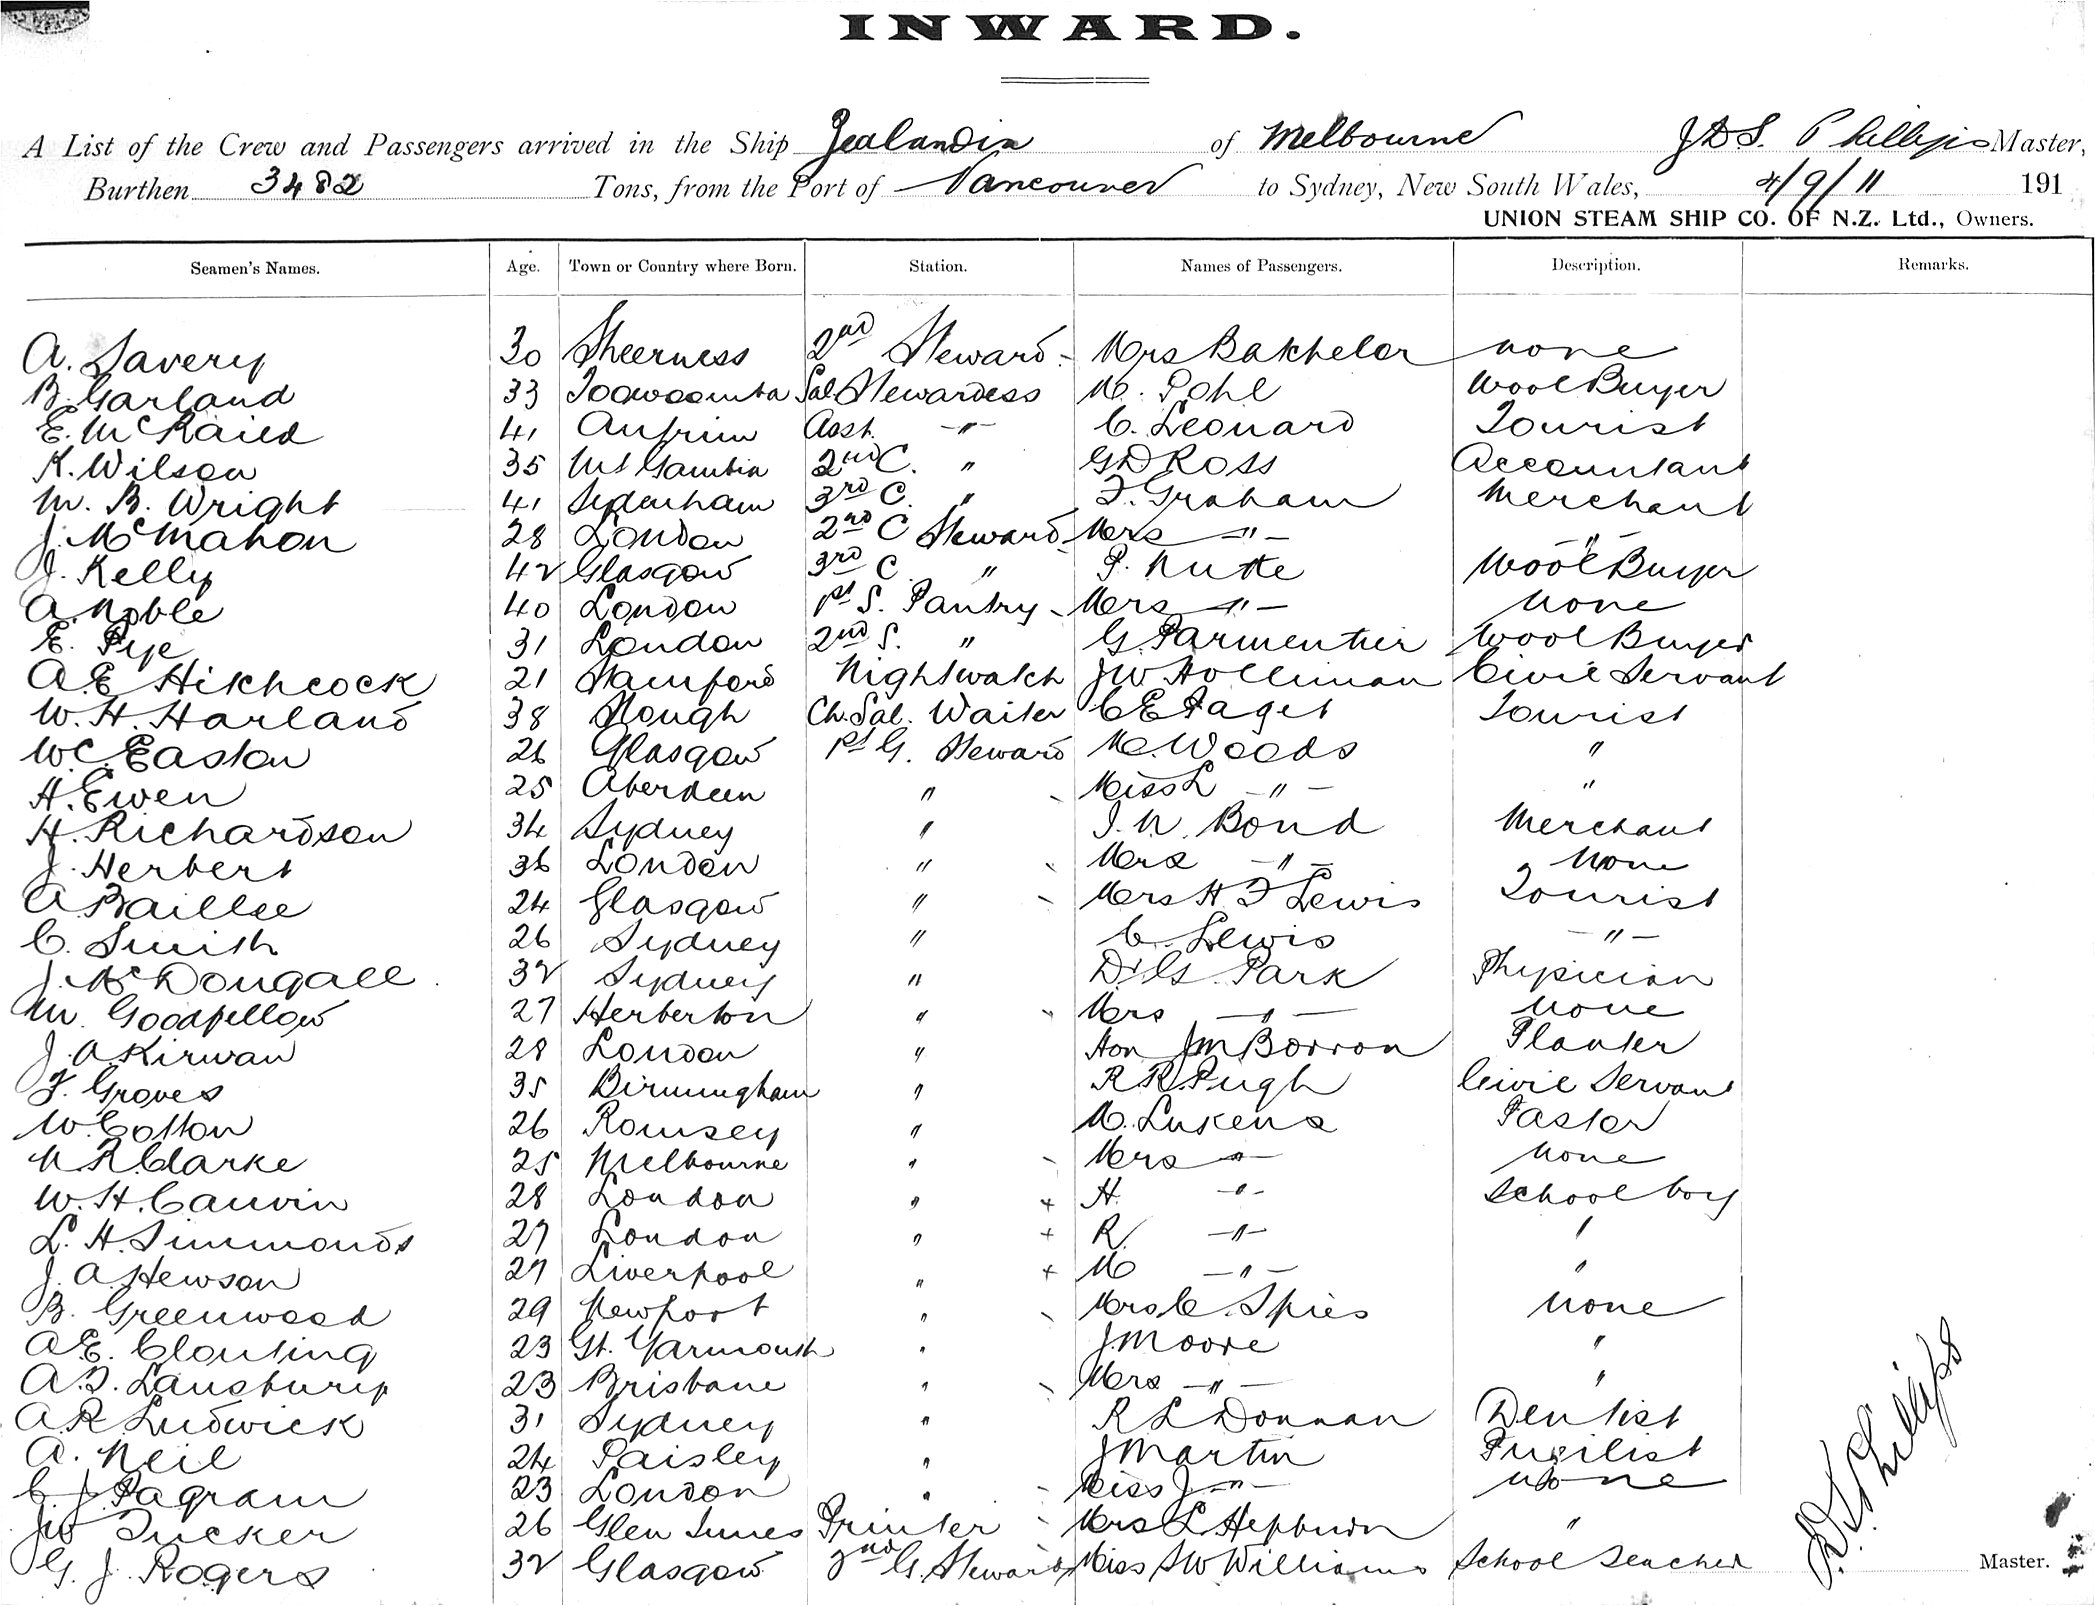 INWARD.
A List of the Crew and Passengers arrived in the Ship Zealandia of Melbourne J D S. Phillips Master,
Burthen 3482 Tons, from the Port of Vancouver to Sydney, New South Wales, 4/9/11 191
UNION STEAM SHIP CO. OF N.Z. Ltd., Owners.
Seamen's Names. Age. Town or Country where Born. Station. Names of Passengers. Description. Remarks.
A. Savery 30 Sheerness 2nd Steward - Mrs Batchelor none
B. Garland 33 Toowoomba Sal. Stewardess M. Pohl Wool Buyer
E. McKaied 41 Antrim Asst. -"- C. Leonard Tourist
K. Wilson 35 Mt Gambia 2nd C. " G D Ross Accountant
M. B. Wright 41 Sydenham 3rd C. " F. Graham Merchant
J. McMahon 28 London 2nd C Steward - Mrs -"- -"-
J. Kelly 42 Glasgow 3rd C " P. Nutte Wool Buyer
A. Noble 40 London 1st S. Pantry - Mrs -"- None
E. Pye 31 London 2nd S. " G. Parmentier Wool Buyer
A.E Hitchcock 21 Stamford Nightwatch J W Holliman Civil Servant
W. H. Harland 38 Slough Ch. Sal. Waiter C E Faget Tourist
W.C. Easton 26 Glasgow 1st G. Steward M. Woods "
H. Ewen 25 Aberdeen " Miss L -"- "
H. Richardson 34 Sydney " J. N. Bond Merchant
J. Herbert 36 London " Mrs -"- None
A Baillie 24 Glasgow " Mrs H F Lewis Tourist
C. Smith 26 Sydney " C. Lewis -"-
J. McDougall 32 Sydney " Dr G. Park Physician
M. Goodfellow 27 Herberton " Mrs -"- None
J. A Kirwan 28 London " Hon J M Borron Planter
F. Groves 35 Birmingham " R R Pugh Civil Servant
W. Cotton 26 Romsey " M. Lukens Pastor
N R. Clarke 25 Melbourne " Mrs -"- None
W. H. Cauvin 28 London " + H. -"- School boy
L. H. Simmonds 27 London " + R. -"- "
J. A. Hewson 27 Liverpool " + M -"- "
B. Greenwood 29 Newport " Mrs C. Spies None
A.E. Clouting 23 Gt. Yarmouth " J. Moore "
A. S. Lansbury 23 Brisbane " Mrs -"- "
A R Ludwick 31 Sydney " R L Donnan Dentist
A. Neil 24 Paisley " J Martin Pugilist
C. J. Pagram 23 London " Miss J -"- None
J W Tucker 26 Glen Innes Printer - Mrs L Hepburn "
G. J. Rogers 32 Glasgow 2nd G. Steward Miss S W Williams School Teacher
J.D.S. Phillips
Master.